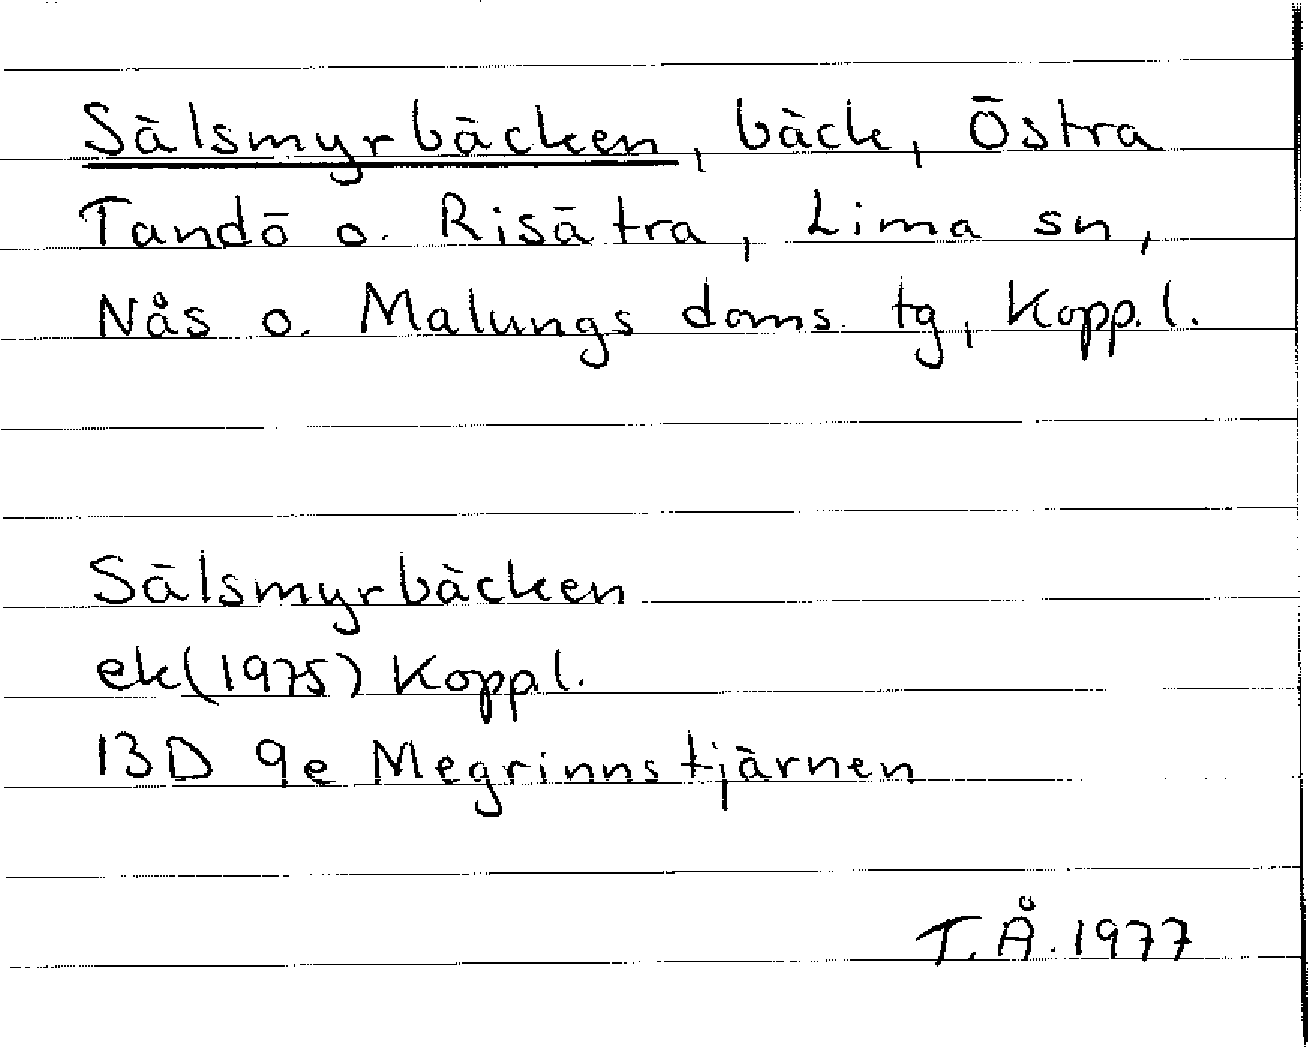 Sälsmyrbäcken, bäck, Östra
Tandö o. Risätra, Lima sn,
Nås o. Malungs doms. tg, Kopp. l.
Sälsmyrbäcken
ek(1975) Koppl.
13D 9e Megrinnstjärnen
T.Å. 1977